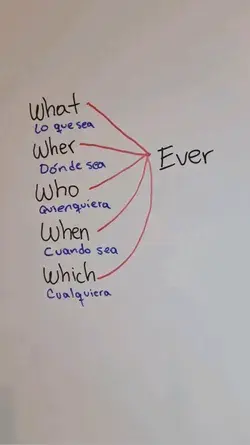 What
Lo que sea
Wher
Dónde sea
Who
Quienquiera
When
Cuando sea
Which
Cualquiera
Ever